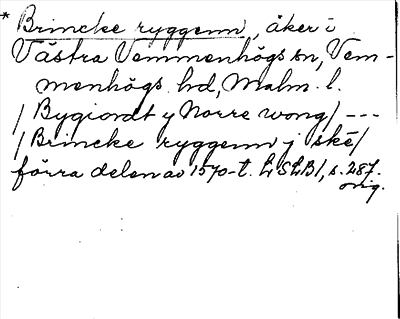 * Brincke ryggenn, åker i
Västra Vemmenhögs sn, Vem-
menhögs hd, Malm. l.
/ Bygiordt y Norre wong / ---
/ Brincke ryggenn j ské /
förra delen av 1570-t. LSLB1, s. 287.
orig.